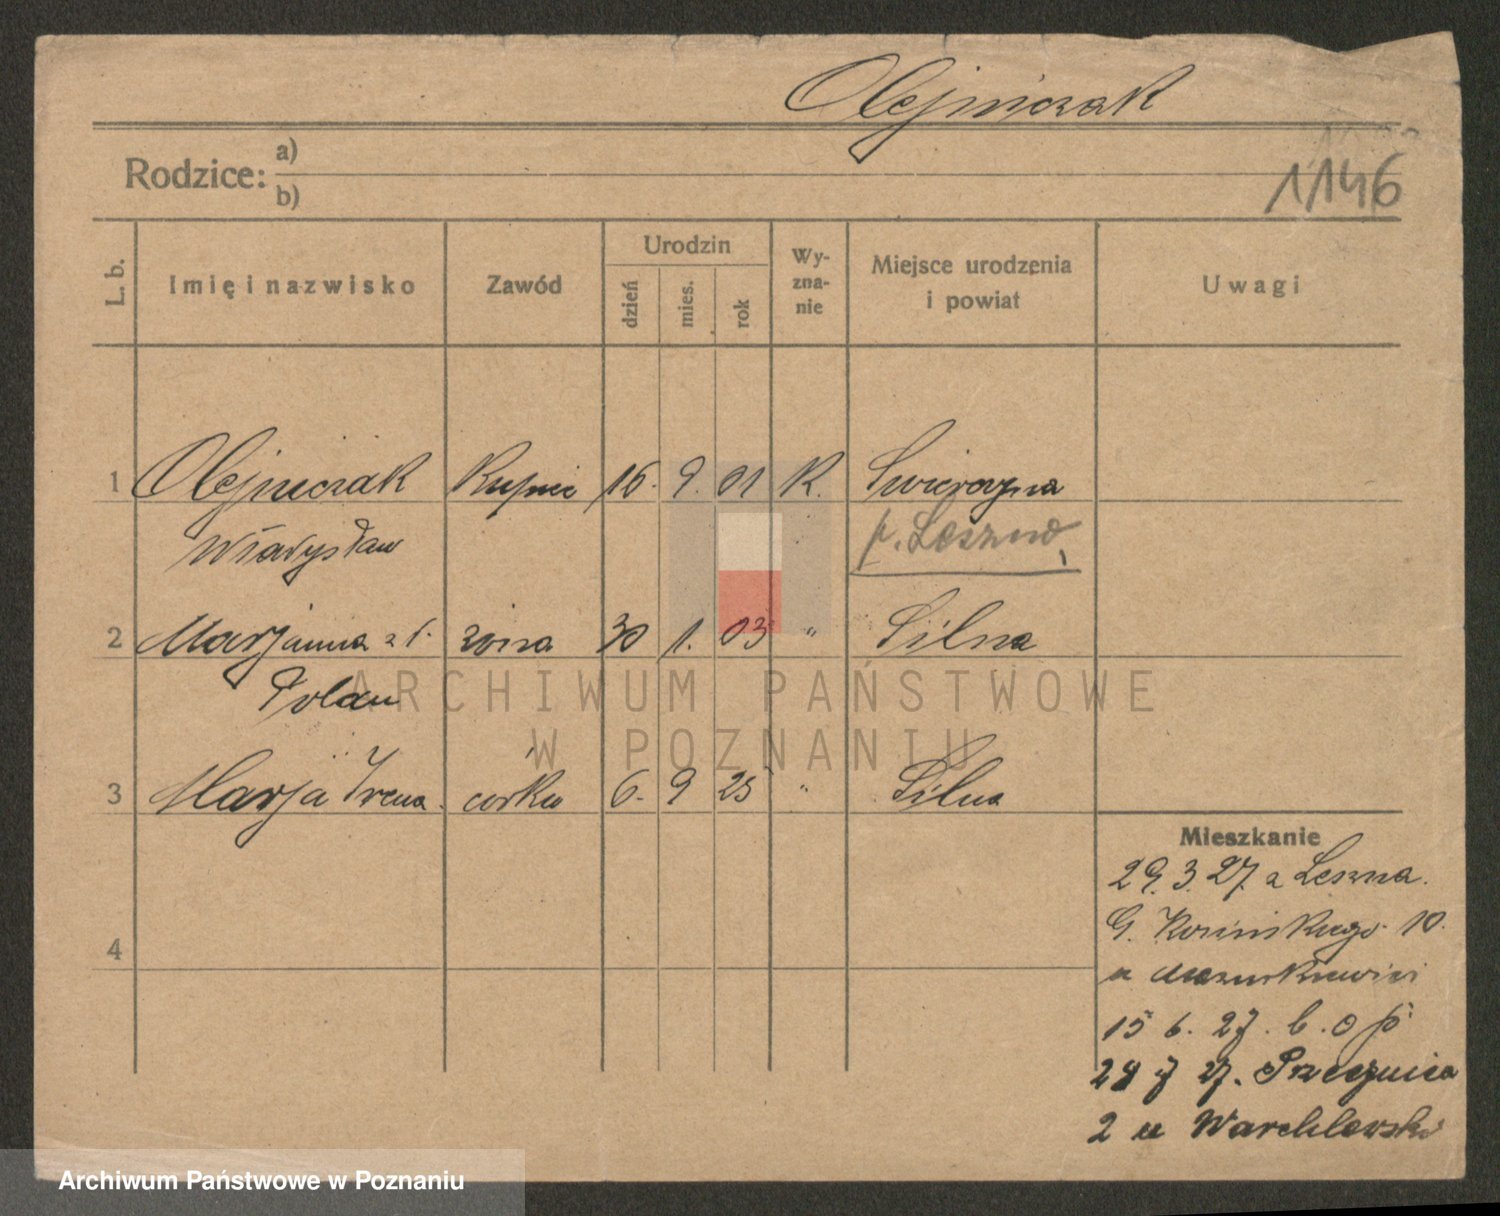 Olejniczak
Rodzice: a)
b)
1146
L. b. Imię i nazwisko Zawód Urodzin dzień mies. rok Wy-zna-nie Miejsce urodzenia i powiat Uwagi
1 Olejniczak Kupiec 16. 9. 01 R. Swierczyna
Władysław p. Leszno
2 Marjanna z d. żona 30 1. 03 " Silna
Polan
3 Marja Irena córka 6. 9 25 " Silna
Mieszkanie
29. 3. 27. z Leszna.
G. Kosińskiego 10.
4
u Mazurkiewicz
15 6. 27. b. o p
7 27. Przecznica
2 u Warchlewski
ARCHIWUM PAŃSTWOWE
W POZNANIU
Archiwum Państwowe w Poznaniu